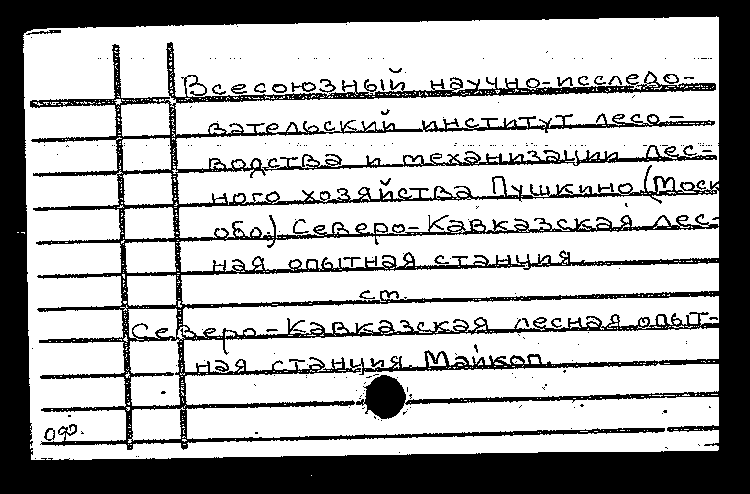 Всесоюзный научно-исследо-
вательский институт лесо-
водства и механизации лес-
ного хозяйства Пушкино (Моск
обл.) Северо-Кавказская лес-
ная опытная станция.
см.
Северо-Кавказская лесная опыт-
ная станция. Майкоп.